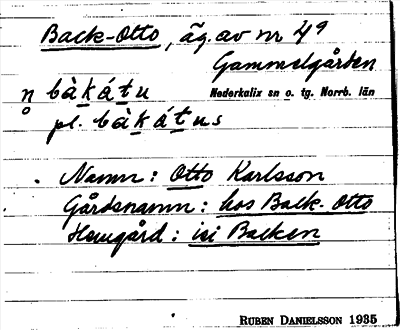 Back-Otto, äg. av nr 4⁹
Gammelgården
n bàkátu Nederkalix sn o. tg. Norrb. län
o
pl. bàkátus
Namn: Otto Karlsson
Gårdsnamn: hos Back-Otto
Hemgård: isi Backen
RUBEN DANIELSSON 1935